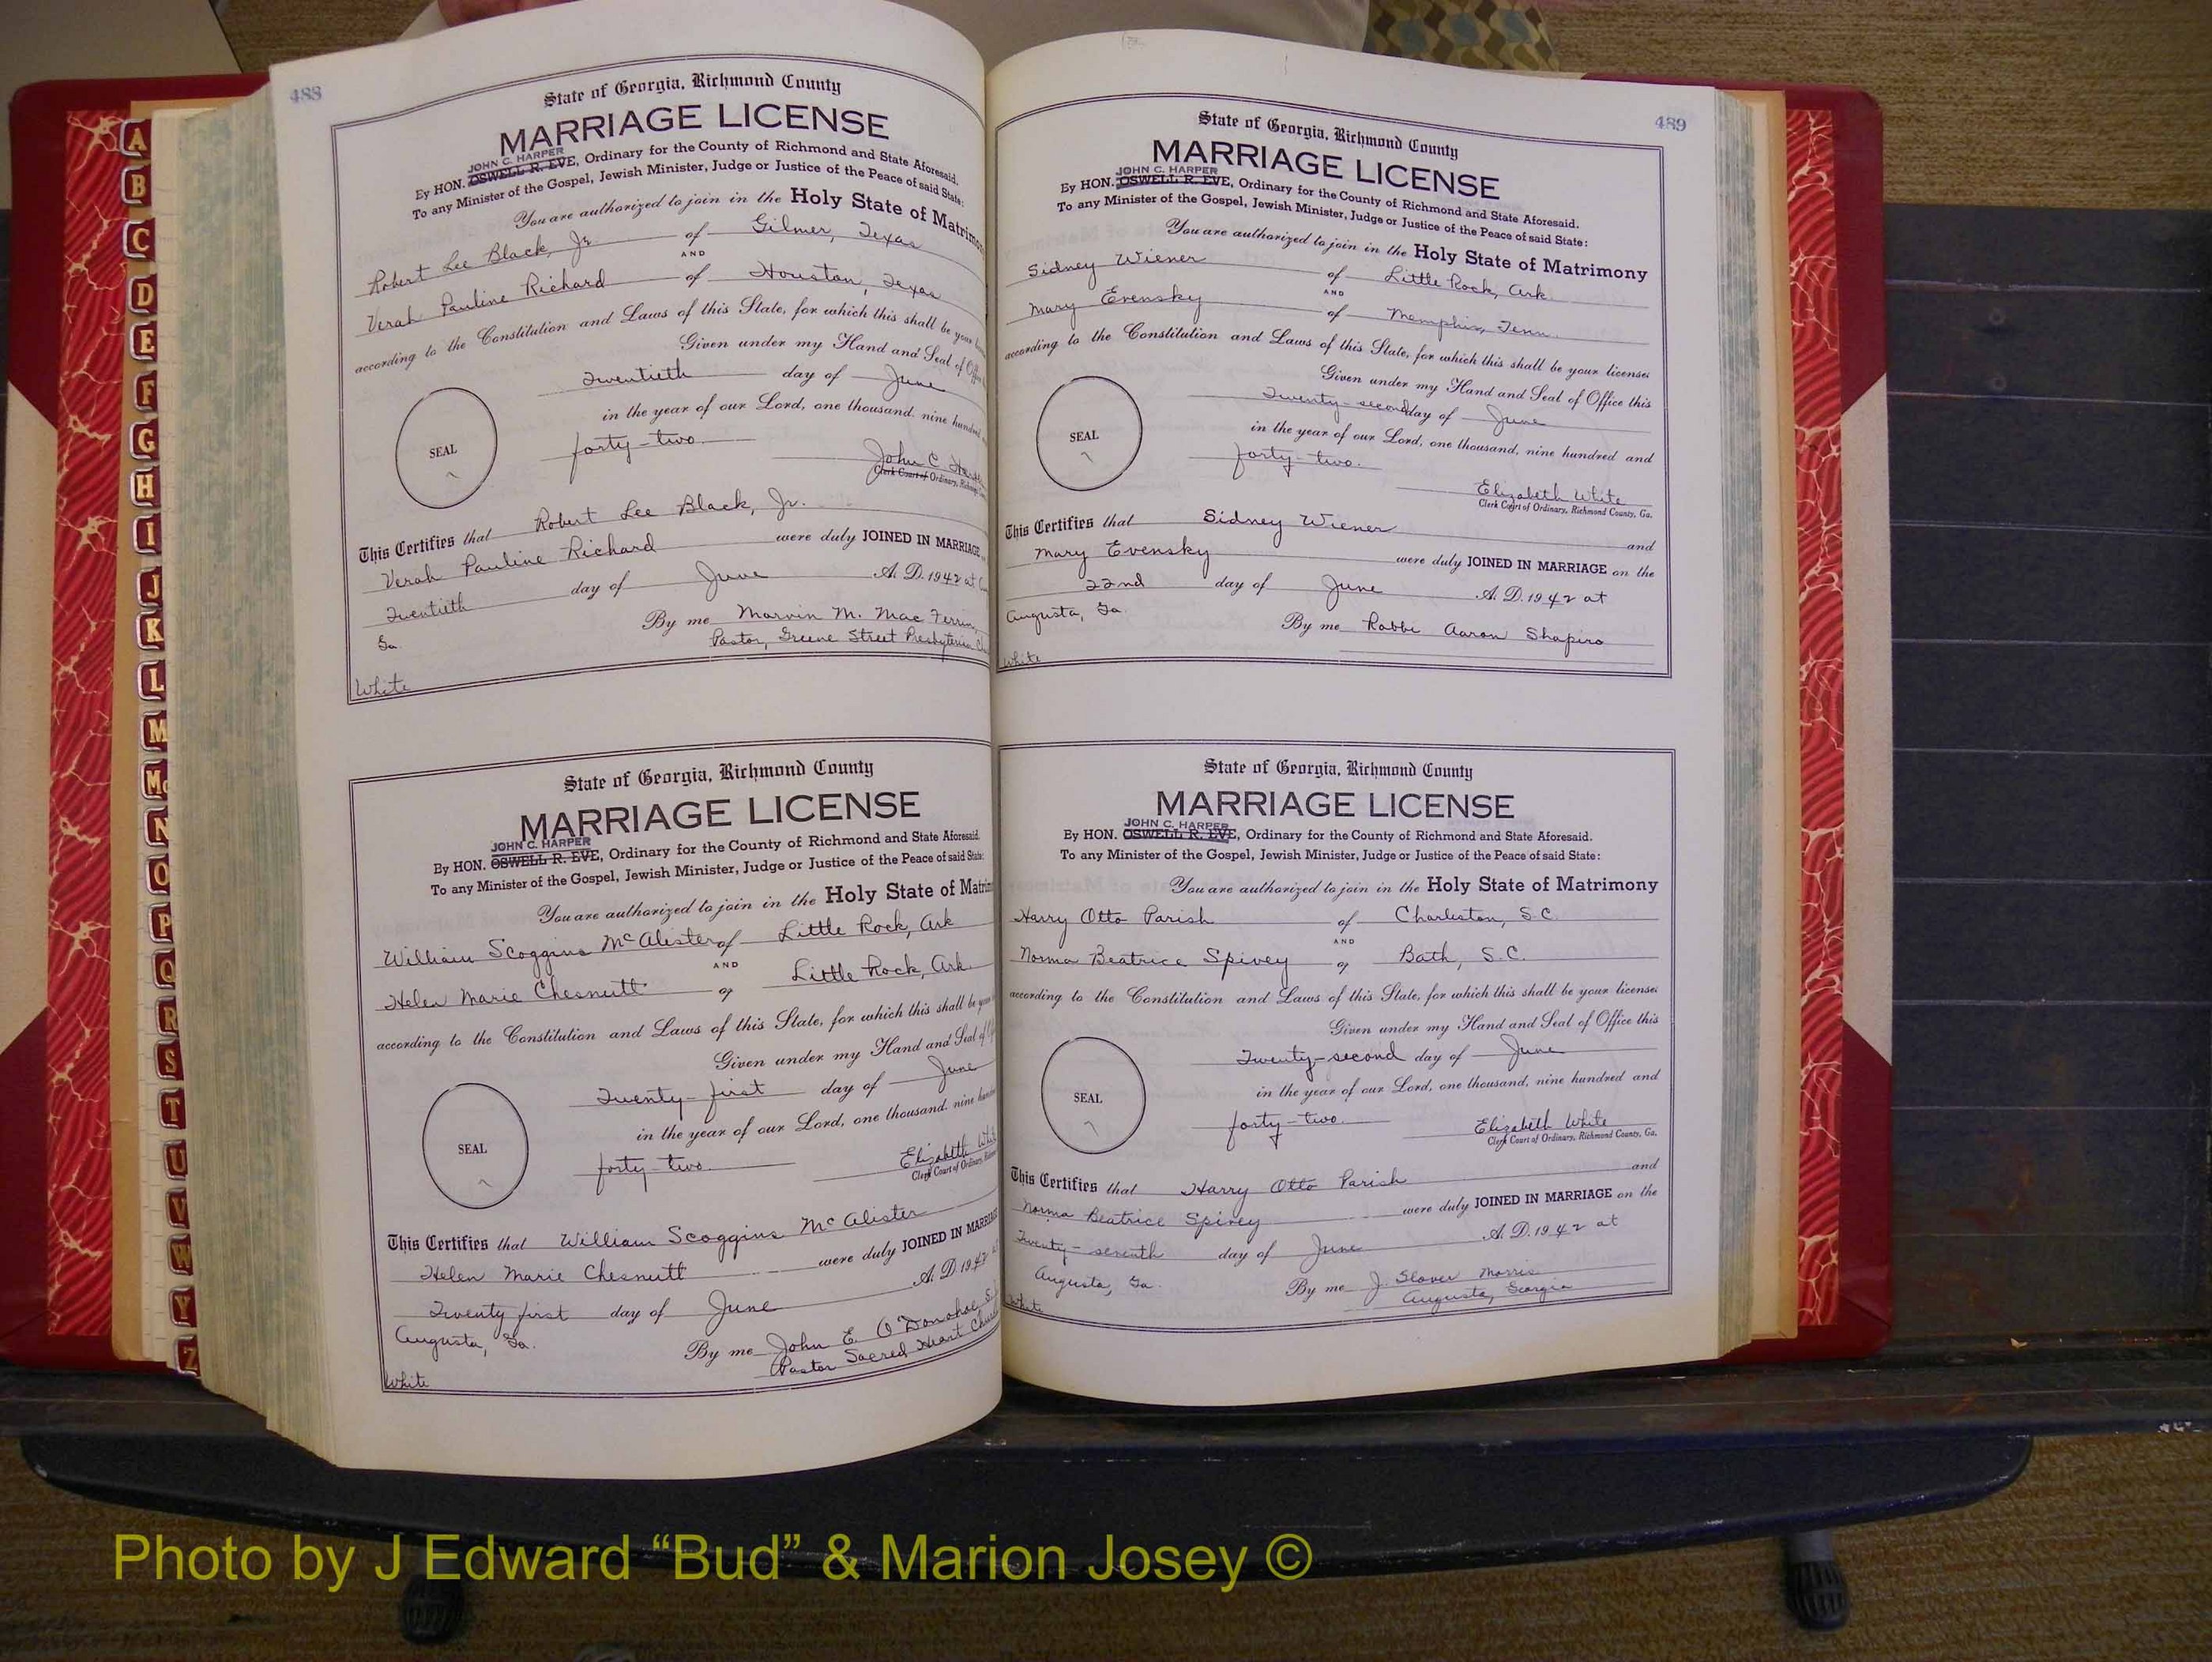 488
State of Georgia, Richmond County
MARRIAGE LICENSE
JOHN C. HARPER
By HON. OSWELL R. EVE, Ordinary for the County of Richmond and State Aforesaid.
To any Minister of the Gospel, Jewish Minister, Judge or Justice of the Peace of said State:
You are authorized to join in the Holy State of Matrimony
Robert Lee Black, Jr of Gilmer, Texas
AND
Verah Pauline Richard of Houston, Texas
according to the Constitution and Laws of this State, for which this shall be your
Given under my Hand and Seal of
Twentieth day of June
in the year of our Lord, one thousand, nine hundred
forty-two.
SEAL
John C.
Clerk Court of Ordinary,
This Certifies that Robert Lee Black, Jr.
Verah Pauline Richard were duly JOINED IN MARRIAGE
Twentieth day of June A. D. 1942 at
Ga.
By me Marvin M. Mac Ferrin,
Pastor, Greene Street Presbyterian
White
State of Georgia, Richmond County
MARRIAGE LICENSE
JOHN C. HARPER
By HON. OSWELL R. EVE, Ordinary for the County of Richmond and State Aforesaid.
To any Minister of the Gospel, Jewish Minister, Judge or Justice of the Peace of said State:
You are authorized to join in the Holy State of
William Scoggins McAlister of Little Rock, Ark
AND
Helen Marie Chesnutt of Little Rock, Ark.
according to the Constitution and Laws of this State, for which this shall be
Given under my Hand and Seal of
Twenty-first day of June
in the year of our Lord, one thousand, nine
forty-two.
SEAL
Elizabeth
Clerk Court of Ordinary,
This Certifies that William Scoggins McAlister
Helen Marie Chesnutt were duly JOINED IN MARRIAGE
Twenty first day of June A. D. 1942
Augusta, Ga.
By me John E. O'Donohoe, S.
Pastor Sacred Heart Church
White
489
State of Georgia, Richmond County
MARRIAGE LICENSE
JOHN C. HARPER
By HON. OSWELL R. EVE, Ordinary for the County of Richmond and State Aforesaid.
To any Minister of the Gospel, Jewish Minister, Judge or Justice of the Peace of said State:
You are authorized to join in the Holy State of Matrimony
Sidney Wiener of Little Rock, Ark.
AND
Mary Evensky of Memphis, Tenn.
according to the Constitution and Laws of this State, for which this shall be your license:
Given under my Hand and Seal of Office this
Twenty-second day of June
in the year of our Lord, one thousand, nine hundred and
forty-two.
SEAL
Elizabeth White
Clerk Court of Ordinary, Richmond County, Ga.
This Certifies that Sidney Wiener and
Mary Evensky were duly JOINED IN MARRIAGE on the
22nd day of June A. D. 1942 at
Augusta, Ga.
By me Rabbi Aaron Shapiro
White
State of Georgia, Richmond County
MARRIAGE LICENSE
JOHN C. HARPER
By HON. OSWELL R. EVE, Ordinary for the County of Richmond and State Aforesaid.
To any Minister of the Gospel, Jewish Minister, Judge or Justice of the Peace of said State:
You are authorized to join in the Holy State of Matrimony
Harry Otto Parish of Charleston, S.C.
AND
Norma Beatrice Spivey of Bath, S.C.
according to the Constitution and Laws of this State, for which this shall be your license:
Given under my Hand and Seal of Office this
Twenty-second day of June
in the year of our Lord, one thousand, nine hundred and
forty-two.
SEAL
Elizabeth White
Clerk Court of Ordinary, Richmond County, Ga.
This Certifies that Harry Otto Parish and
Norma Beatrice Spivey were duly JOINED IN MARRIAGE on the
Twenty-seventh day of June A. D. 1942 at
Augusta, Ga.
By me J. Slover Morris
Augusta, Georgia
White
A
B
C
D
E
F
G
H
I
J
K
L
M
Mc
N
O
P
Q
R
S
T
U
V
W
Y
Z
Photo by J Edward “Bud” & Marion Josey ©